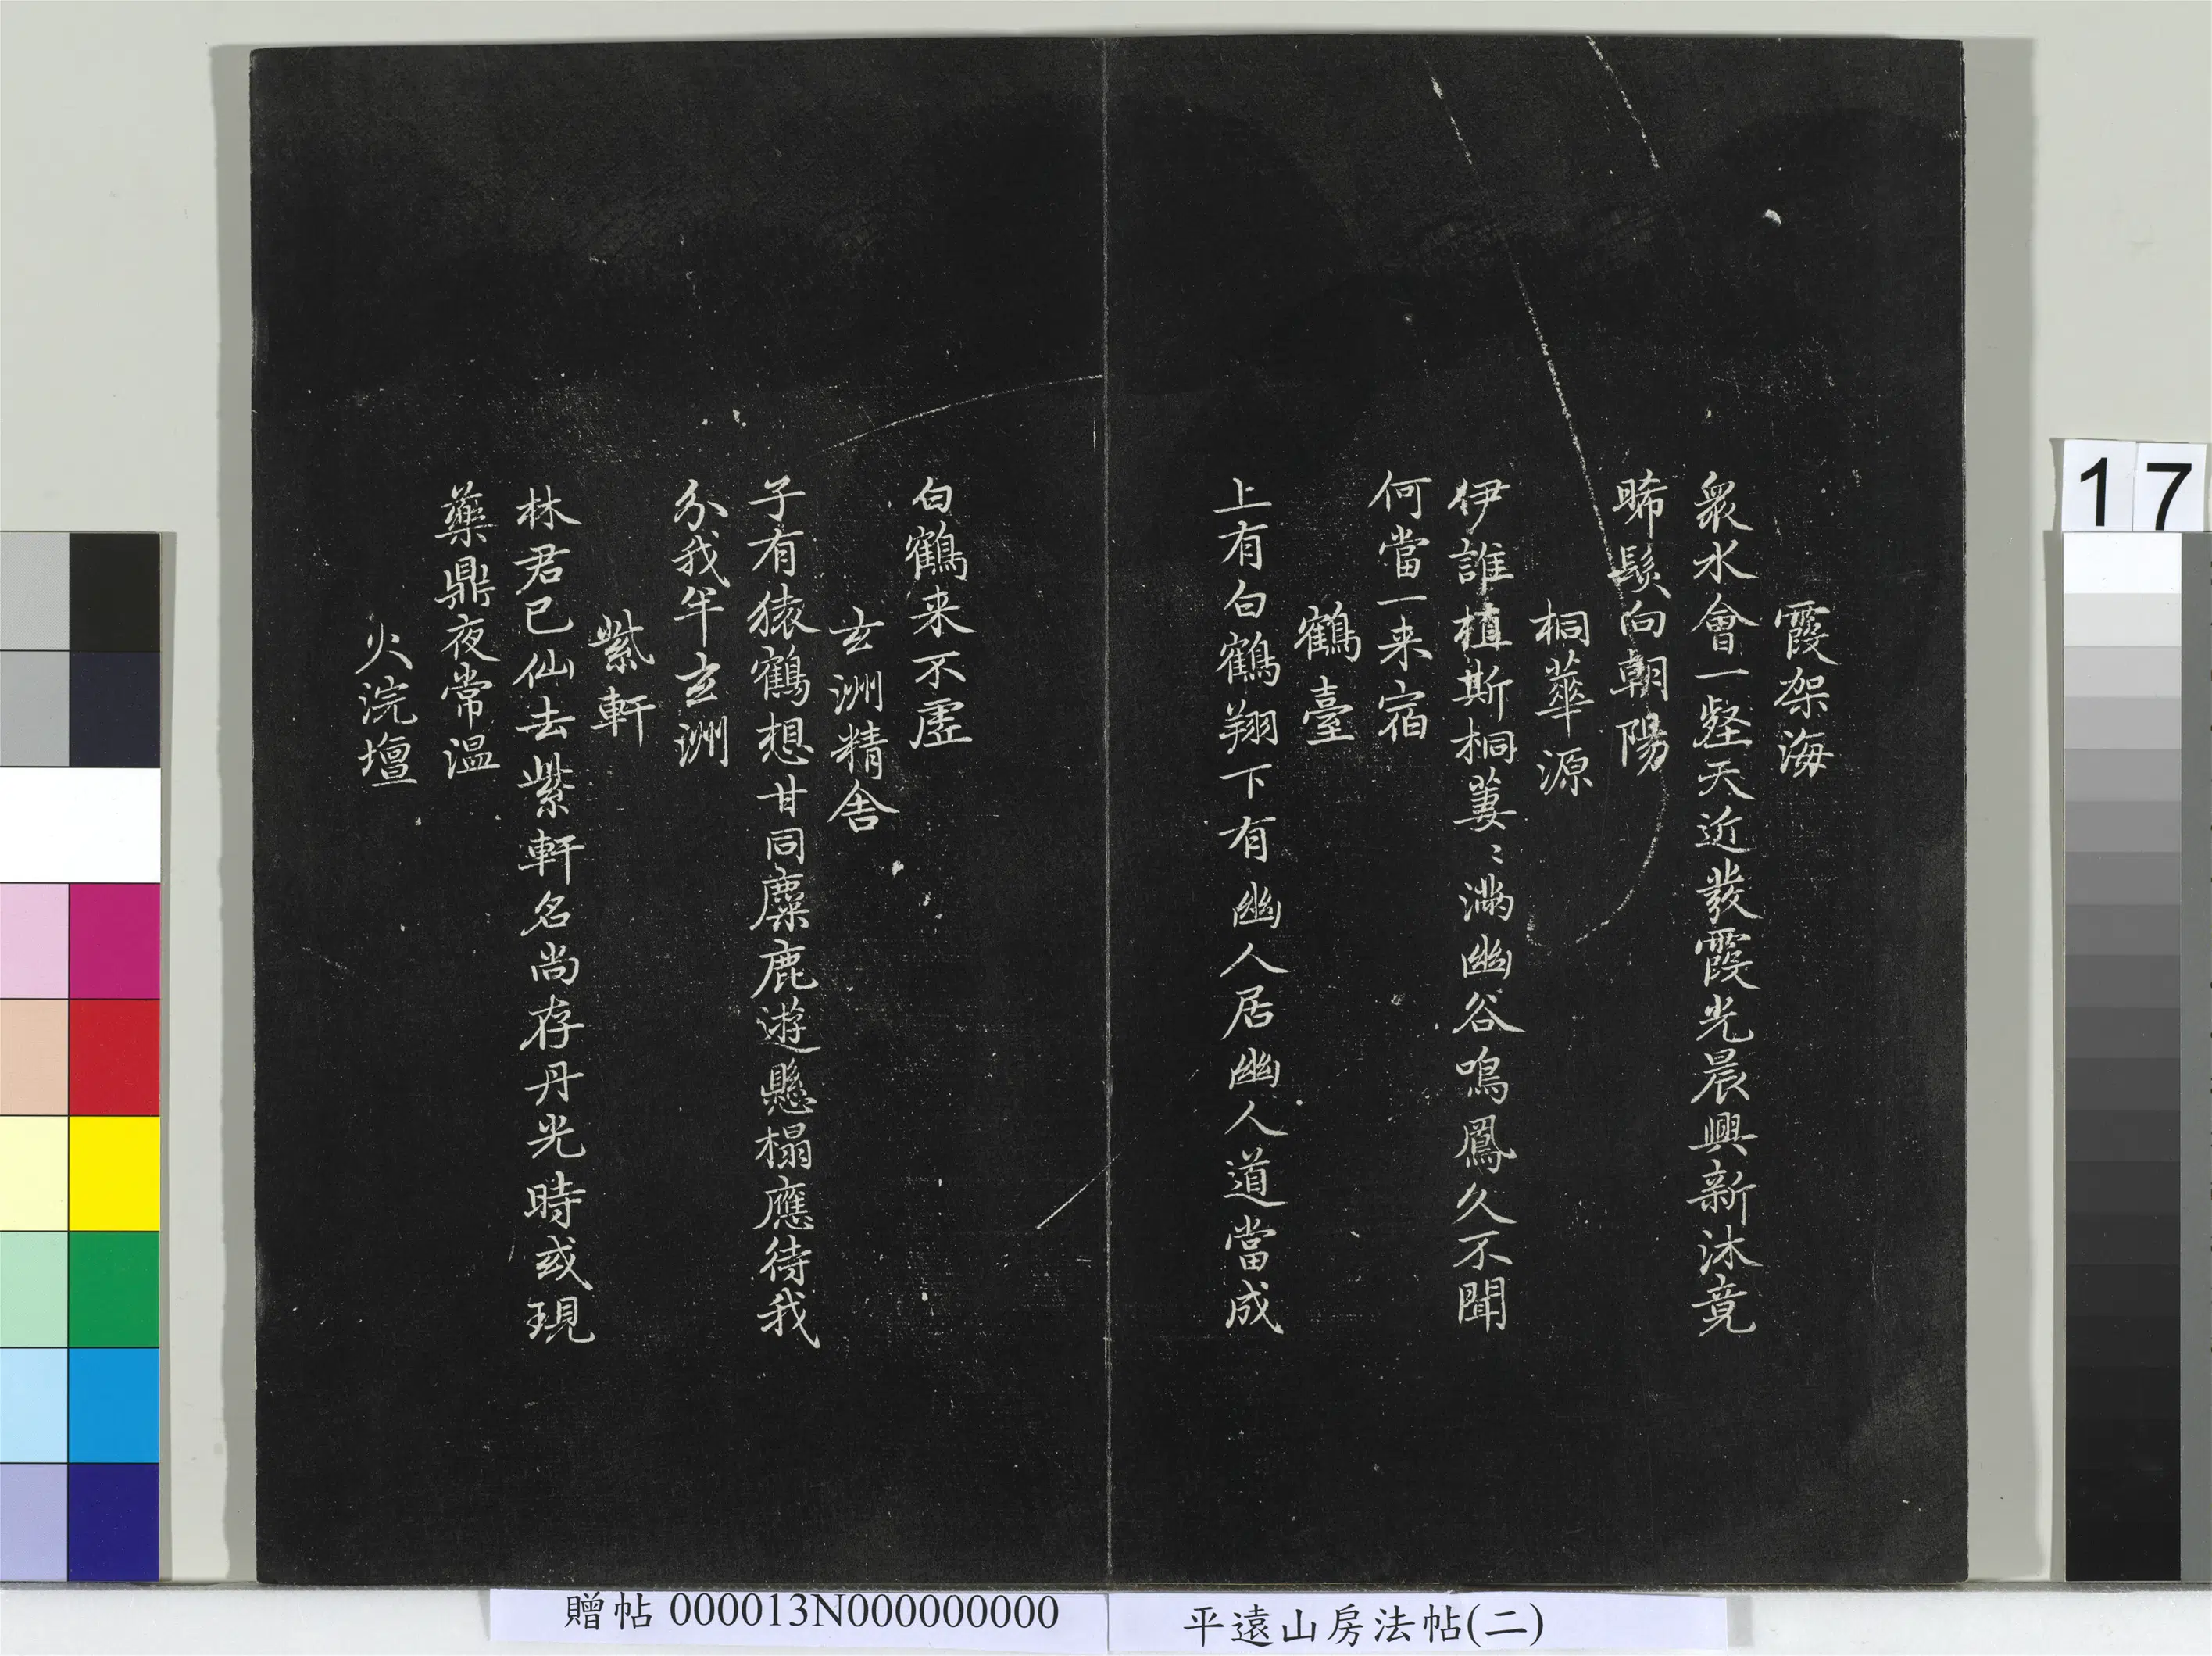 霞架海
衆水會一壑天近發霞光晨興新沐竟
晞髮向朝陽
桐華源
伊誰植斯桐萋〻滿幽谷鳴鳳久不聞
何當一来宿
鶴臺
上有白鶴翔下有幽人居幽人道當成
白鶴来不虛
玄洲精舍
子有猿鶴想甘同麋鹿遊懸榻應待我
分我半玄洲
紫軒
林君已仙去紫軒名尚存丹光時或現
藥鼎夜常温
火浣壇
17
贈帖 000013N000000000
平遠山房法帖(二)